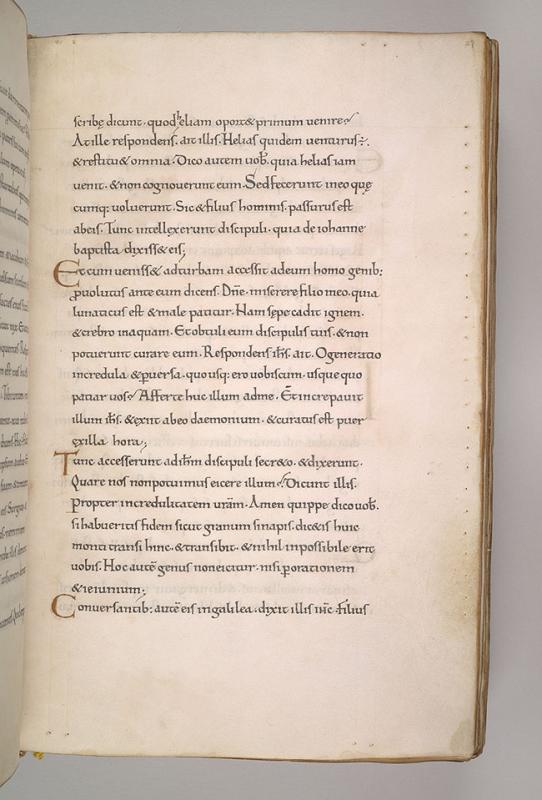 scribę dicunt· quod heliam oport& primum venire?
At ille respondens· ait illis· Helias quidem venturus ÷·
& restitu& omnia· Dico autem vob· quia helias iam
venit· & non cognouerunt eum· Sed fecerunt in eo quę
cumq; voluerunt· Sic & filius hominis· passurus est
ab eis· Tunc intellexerunt discipuli· quia de iohanne
baptista dixiss& eis;
Et cum veniss& ad turbam accessit ad eum homo genib:
puolutus ante eum dicens· Dñe· miserere filio meo· quia
lunaticus est & male patitur· Nam sepe cadit ignem·
& crebro in aquam· Et obtuli eum discipulis tuis· & non
potuerunt curare eum· Respondens ihs· ait· O generatio
incredula & puersa· quo usq; ero vobiscum· usque quo
patiar uos? Afferte huc illum ad me· Et increpauit
illum ihs· & exiit ab eo daemonium· & curatus est puer
ex illa hora;
Tunc accesserunt ad ihm discipuli secr&o· & dixerunt·
Quare nos non potuimus eicere illum? Dicunt illis·
Propter incredulitatem uram· Amen quippe dico vob·
si habueritis fidem sicut granum sinapis· dic&is huic
monti transi hinc· & transibit· & nihil inpossibile erit
vobis· Hoc autē genus non eicitur· nisi p orationem
& ieiunium;
Conversantib: autē eis in galilea· dixit illis ihc· Filius